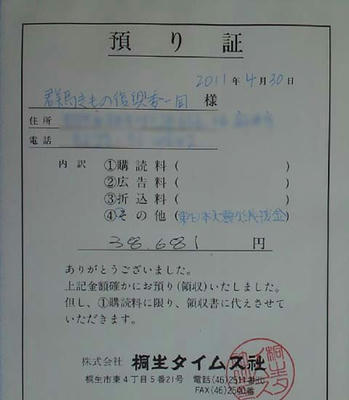 預り証
2011年4月30日
群馬きもの復興委一同 様
住所
電話
内訳 ①購読料(　　)
②広告料(　　)
③折込料(　　)
④その他(東日本大震災義援金)
38.681 円
ありがとうございました。
上記金額確かにお預り(領収)いたしました。
但し、①購読料に限り、領収書に代えさせて
いただきます。
株式会社 桐生タイムス社
桐生市東4丁目5番21号 電話(46)2511番
FAX(46)2500番